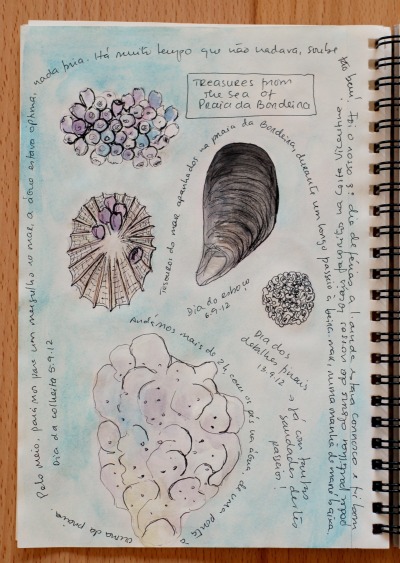 Treasures from
the sea of
Praia da Bordeira
Tesouros do mar apanhados na praia da Bordeira, durante um longo passeio à beira-mar, numa manhã de maré baixa.
Andámos mais de 2h, com os pés na água, de uma ponta à outra da praia.
Pelo meio, parámos para um mergulho no mar, a água estava óptima, nada fria. Há muito tempo que não nadava, soube
tão bem! Foi o nosso 3º dia de férias, a
estava connosco e foi bom
poder partilhar alguns dos nossos locais favoritos na Costa Vicentina.
Dia da colheita 5.9.12
Dia do esboço
6.9.12
Dia dos
detalhes finais
13.9.12
→ já com muitas
saudades destes
passeios!